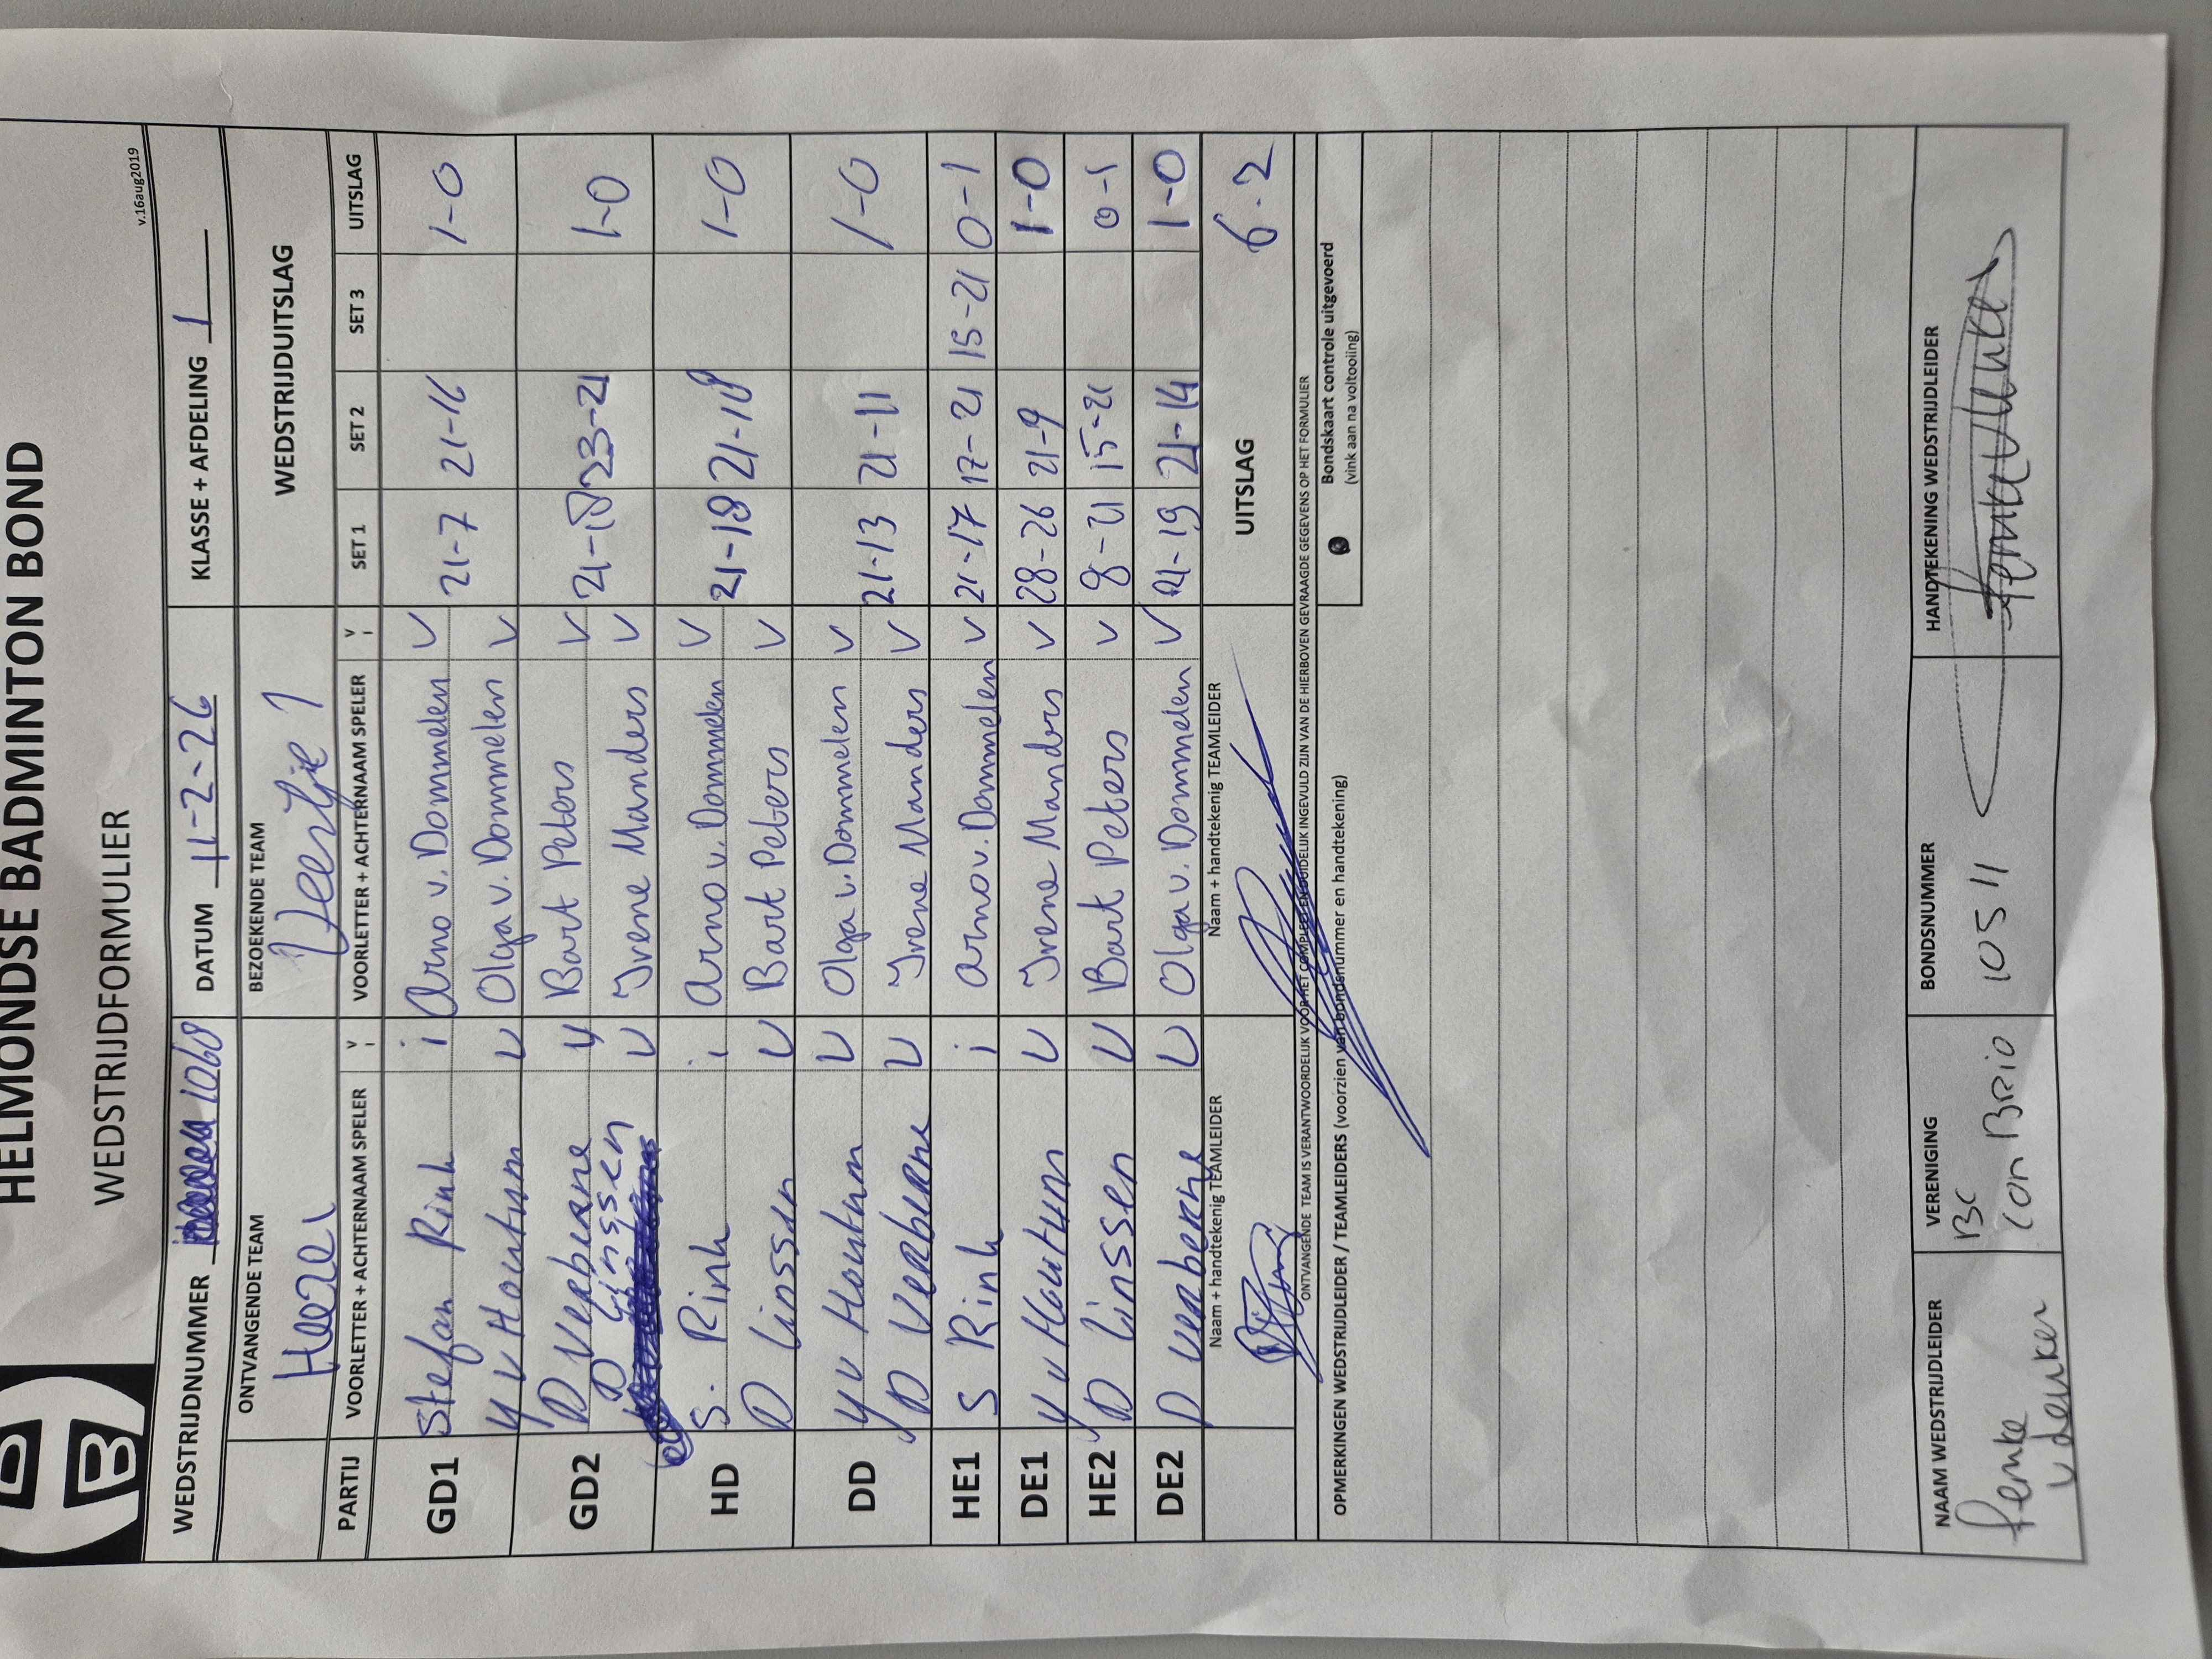 HELMONDSE BADMINTON BOND
WEDSTRIJDFORMULIER
v.16aug2019
WEDSTRIJDNUMMER 1060 DATUM 11-2-26 KLASSE + AFDELING 1
ONTVANGENDE TEAM BEZOEKENDE TEAM WEDSTRIJDUITSLAG
Heeze 1 Veertje 1
PARTIJ VOORLETTER + ACHTERNAAM SPELER V I VOORLETTER + ACHTERNAAM SPELER V I SET 1 SET 2 SET 3 UITSLAG
GD1 Stefan Rink i Arno v. Dommelen V 21-7 21-16 1-0
Y v Houtum V Olga v. Dommelen V
GD2 D Verberne V Bart Peters V 21-18 23-21 1-0
D Linssen V Irene Manders V
HD S. Rink i Arno v. Dommelen V 21-18 21-18 1-0
D Linssen V Bart Peters V
DD Y v Houtum V Olga v. Dommelen V 21-13 21-11 1-0
D Verberne V Irene Manders V
HE1 S Rink i Arno v. Dommelen V 21-17 17-21 15-21 0-1
DE1 Y v Houtum V Irene Manders V 28-26 21-9 1-0
HE2 D Linssen V Bart Peters V 8-21 15-21 0-1
DE2 D Verberne V Olga v. Dommelen V 21-19 21-14 1-0
Naam + handtekenig TEAMLEIDER Naam + handtekenig TEAMLEIDER UITSLAG 6-2
ONTVANGENDE TEAM IS VERANTWOORDELIJK VOOR HET COMPLEET EN DUIDELIJK INGEVULD ZIJN VAN DE HIERBOVEN GEVRAAGDE GEGEVENS OP HET FORMULIER
OPMERKINGEN WEDSTRIJDLEIDER / TEAMLEIDERS (voorzien van bondsnummer en handtekening) Bondskaart controle uitgevoerd
(vink aan na voltooiing)
NAAM WEDSTRIJDLEIDER VERENIGING BONDSNUMMER HANDTEKENING WEDSTRIJDLEIDER
Femke BC 10511
v Deuker Con Brio